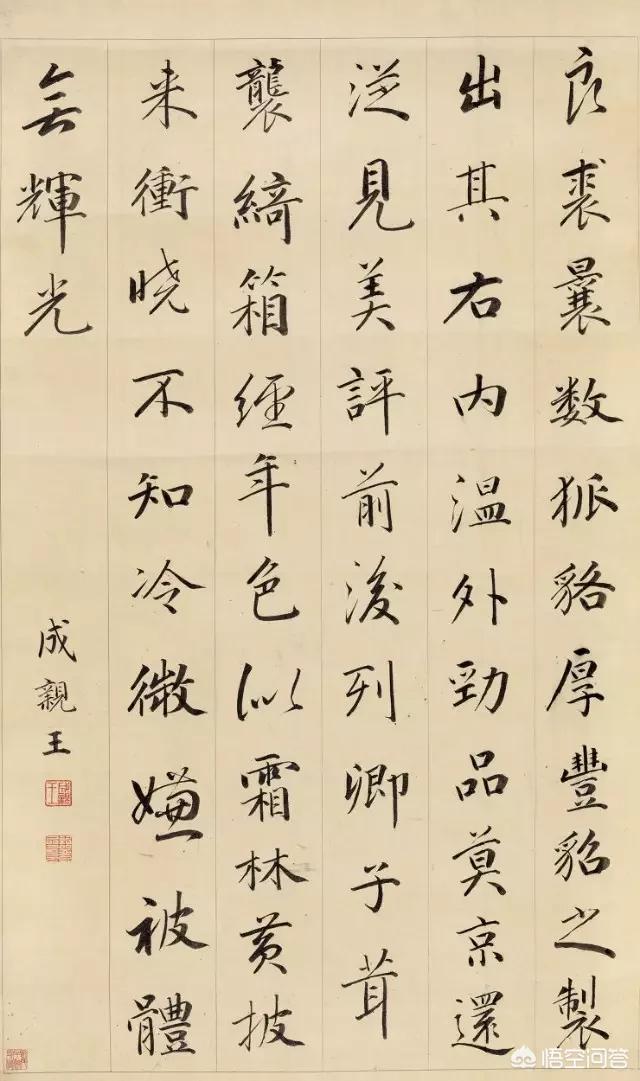 良裘曩数狐貉厚豐貂之製
出其右内温外勁品莫京還
從見美評前後列卿子茸
襲綺箱經年色似霜林黄披
来衝晓不知冷微嫌被體
無輝光
成親王
悟空问答